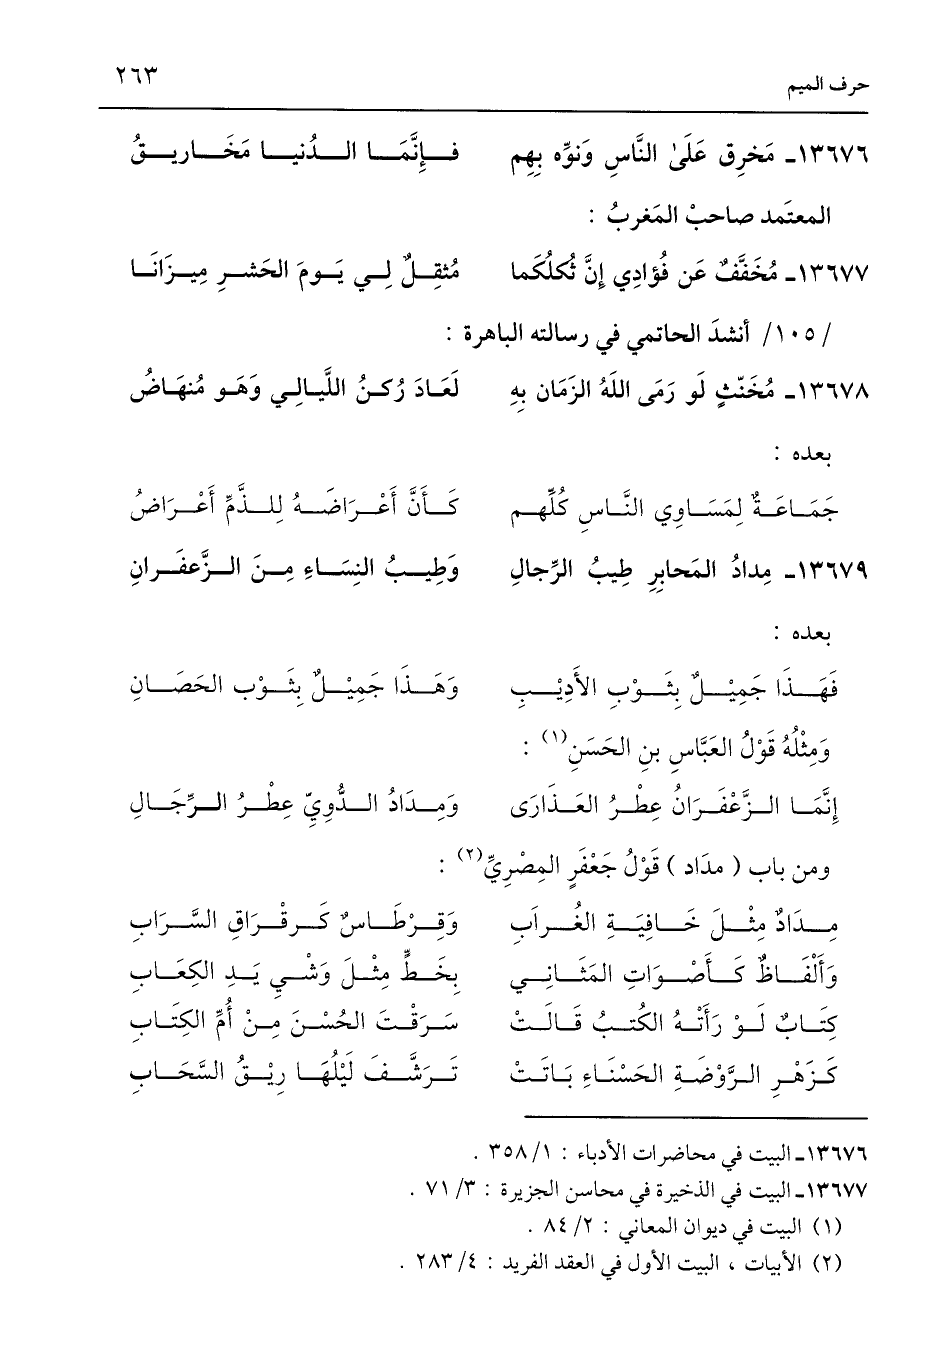 حرف الميم ٢٦٣
١٣٦٧٦ـ مَخرِق عَلَىٰ النَّاسِ وَنوِّه بِهِم فَإِنَّمَا الدُنيا مَخَاريقُ
المعتَمد صاحبْ المَغربُ :
١٣٦٧٧ـ مُخَفَّفٌ عَن فُؤادِي إِنَّ ثُكلُكَما مُثقِلٌ لِي يَومَ الحَشرِ مِيزَانَا
/١٠٥/ أنشدَ الحاتمي في رسالته الباهرة :
١٣٦٧٨ـ مُخَنّثٍ لَو رَمَى اللَهُ الزَمَان بِهِ لَعَادَ رُكنُ اللَّيالِي وَهَو مُنهَاضُ
بعده :
جَمَاعَةٌ لِمَسَاوِي النَّاسِ كُلِّهِم كَأَنَّ أَعْرَاضَهُ لِلذَّمِّ أَعْرَاضُ
١٣٦٧٩ـ مِدادُ المَحابِرِ طِيبُ الرِّجالِ وَطِيبُ النِسَاءِ مِنَ الزَّعفَرانِ
بعده :
فَهَذَا جَمِيْلٌ بِثَوْبِ الأَدِيْبِ وَهَذَا جَمِيْلٌ بِثَوْبِ الحَصَانِ
وَمِثْلُهُ قَوْلُ العَبَّاسِ بنِ الحَسَنِ(١) :
إِنَّمَا الزَّعْفَرَانُ عِطْرُ العَذَارَى وَمِدَادُ الدُّوِيِّ عِطْرُ الرِّجَالِ
ومن باب ( مدَاد ) قَوْلُ جَعْفَرٍ المِصْرِيِّ(٢) :
مِدَادٌ مِثْلَ خَافِيَةِ الغُرَابِ وَقِرْطَاسٌ كَرِقْرَاقِ السَّرَابِ
وَأَلْفَاظٌ كَأَصْوَاتِ المَثَانِي بِخَطٍّ مِثْلَ وَشْيِ يَدِ الكِعَابِ
كِتَابٌ لَوْ رَأَتْهُ الكُتبُ قَالَتْ سَرَقْتَ الحُسْنَ مِنْ أُمِّ الكِتَابِ
كَزَهْرِ الرَّوْضَةِ الحَسْنَاءِ بَاتَتْ تَرَشَّفَ لَيْلُهَا رِيْقُ السَّحَابِ
١٣٦٧٦ـ البيت في محاضرات الأدباء : ١/ ٣٥٨ .
١٣٦٧٧ـ البيت في الذخيرة في محاسن الجزيرة : ٣/ ٧١ .
(١) البيت في ديوان المعاني : ٢/ ٨٤ .
(٢) الأبيات ، البيت الأول في العقد الفريد : ٤/ ٢٨٣ .